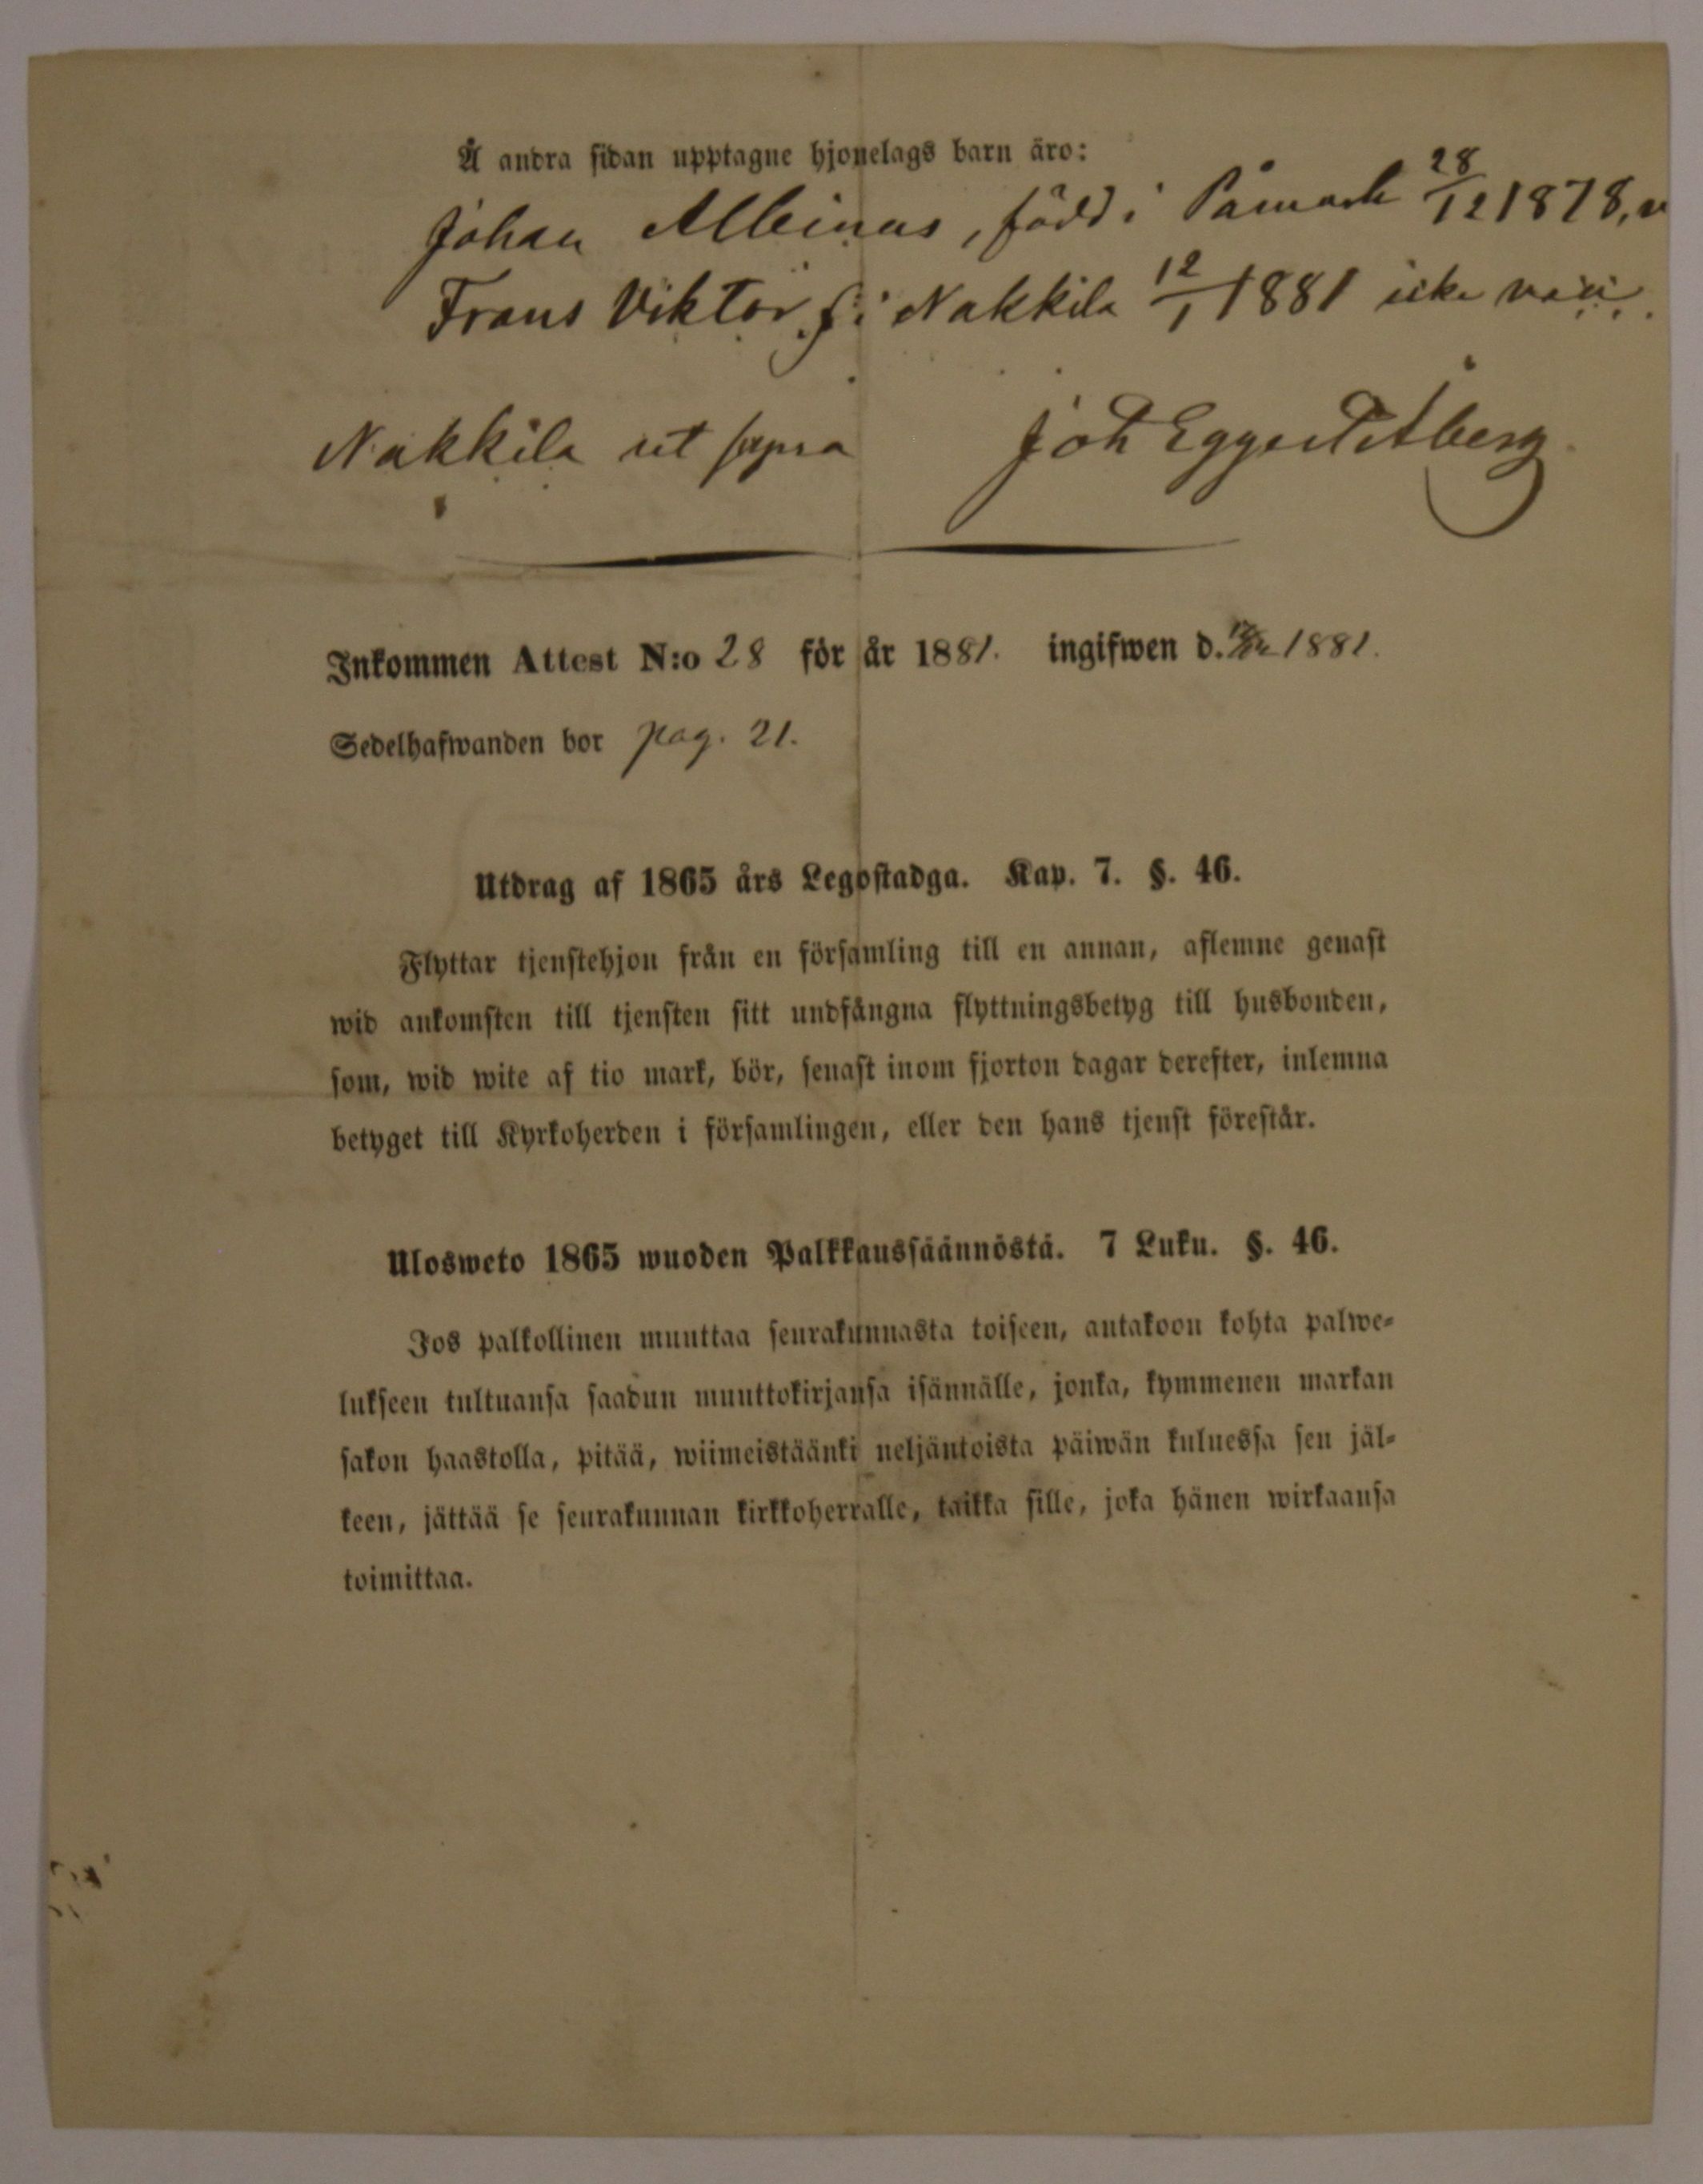 Å andra sidan upptagne hjonelags barn äro:
Johan Albinus, född i Påmark 28/12 1878, v
Frans Viktor f. i Nakkila 12/1 1881 icke vacc.
Nakkila ut supra Joh Eggert Åberg
Inkommen Attest N:o 28 för år 1881. ingifwen d. 1881.
Sedelhafwanden bor pag. 21.
Utdrag af 1865 års Legostadga. Kap. 7. §. 46.
Flyttar tjenstehjon från en församling till en annan, aflemne genast
wid ankomsten till tjensten sitt undfångna flyttningsbetyg till husbonden,
som, wid wite af tio mark, bör, senast inom fjorton dagar derefter, inlemna
betyget till Kyrkoherden i församlingen, eller den hans tjenst förestår.
Ulosweto 1865 wuoden Palkkaussäännöstä. 7 Luku. §. 46.
Jos palkollinen muuttaa seurakunnasta toiseen, antakoon kohta palwe-
lukseen tultuansa saadun muuttokirjansa isännälle, jonka, kymmenen markan
sakon haastolla, pitää, wiimeistäänki neljäntoista päiwän kuluessa sen jäl-
keen, jättää se seurakunnan kirkkoherralle, taikka sille, joka hänen wirkaansa
toimittaa.